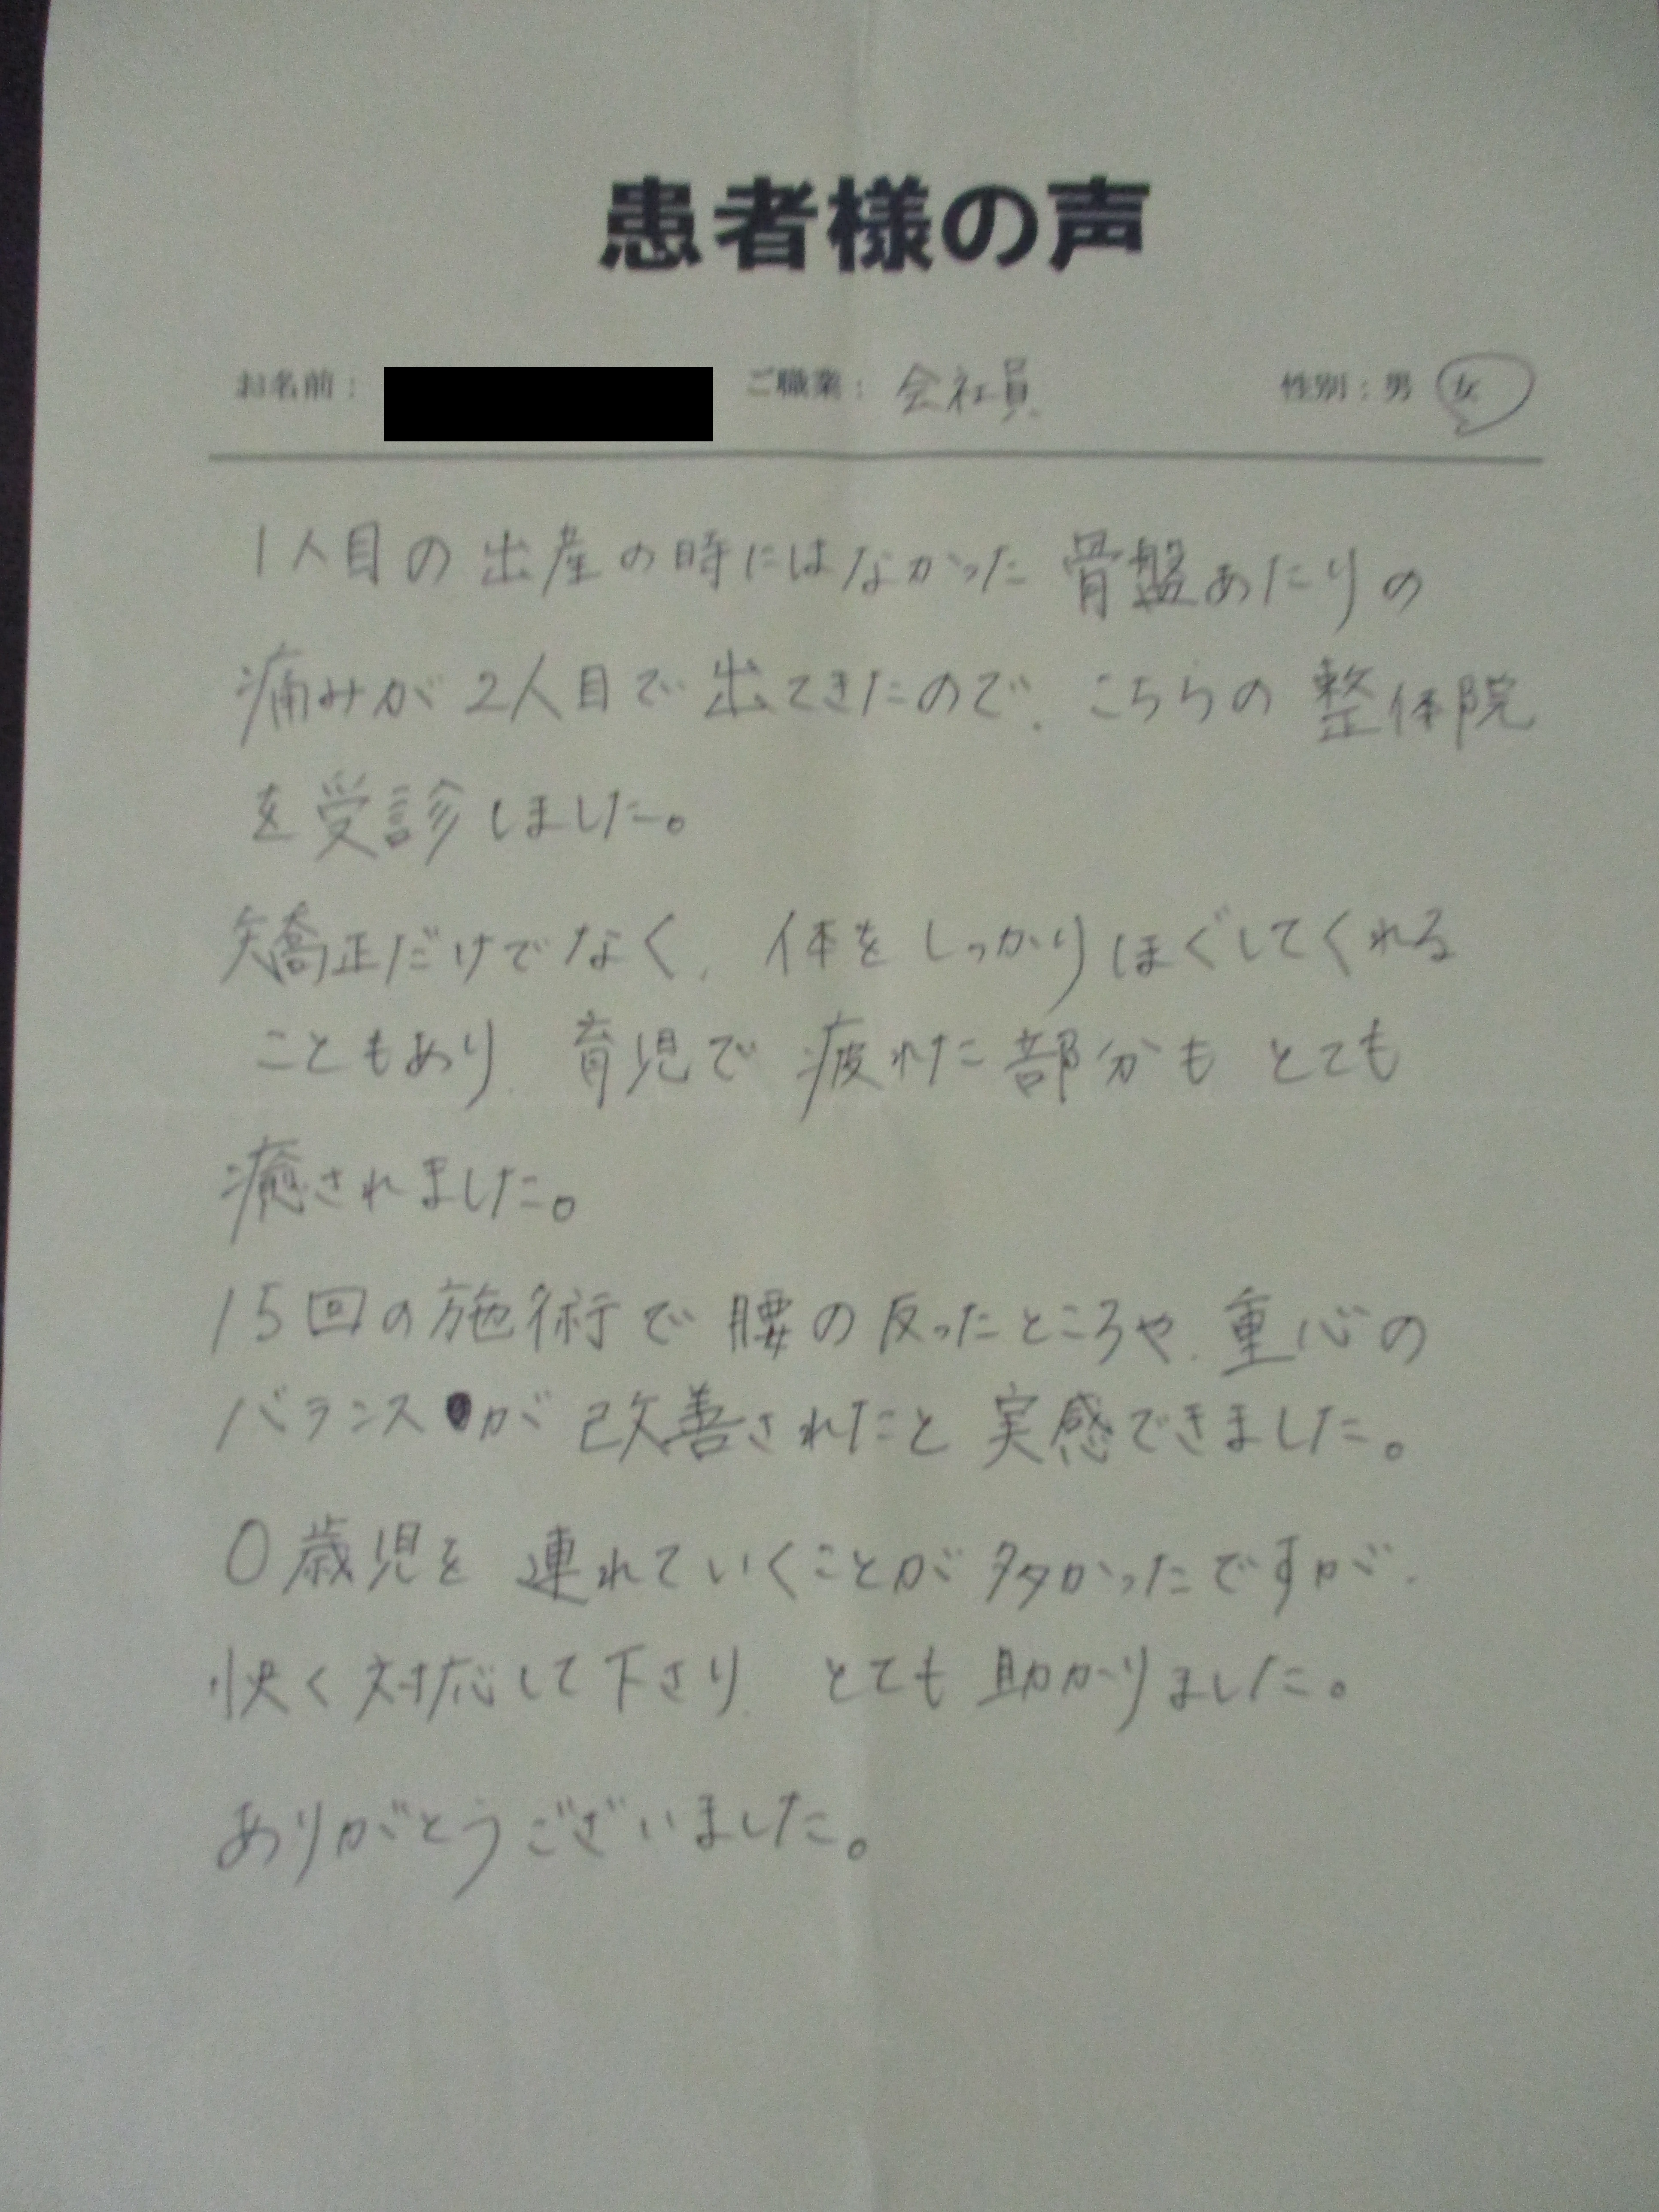 患者様の声
お名前： ご職業： 会社員 性別：男 女
1人目の出産の時にはなかった 骨盤あたりの
痛みが 2人目で 出てきたので、こちらの 整体院
を受診しました。
矯正だけでなく、体をしっかりほぐしてくれる
こともあり、育児で 疲れた部分も とても
癒されました。
15回の施術で 腰の反ったところや、重心の
バランスが 改善されたと 実感できました。
0歳児を 連れていくことが多かったですが、
快く対応して下さり、とても 助かりました。
ありがとうございました。